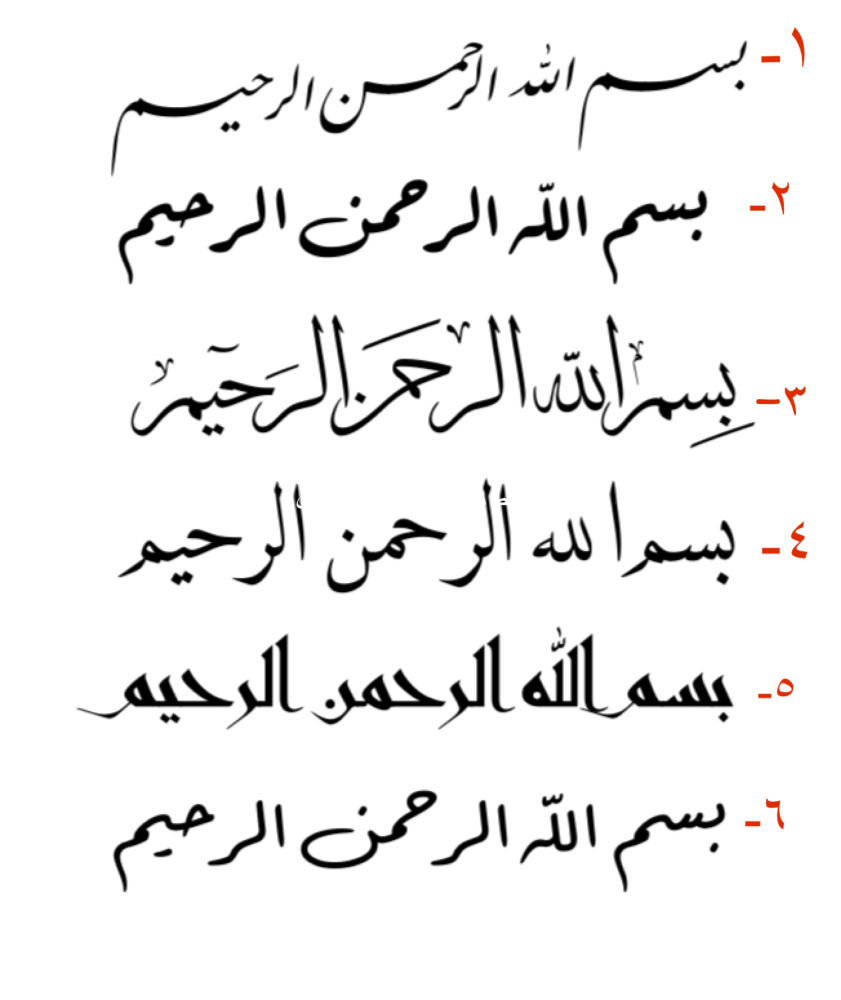 ١- بسم الله الرحمن الرحيم
٢- بسم اللّه الرحمن الرحيم
٣- بِسمراللّه الرحمَن الرَحيۤمر
٤- بسم ا لله الرحمن الرحيم
٥- بسم الله الرحمن الرحيم
٦- بسم اللّه الرحمن الرحيم